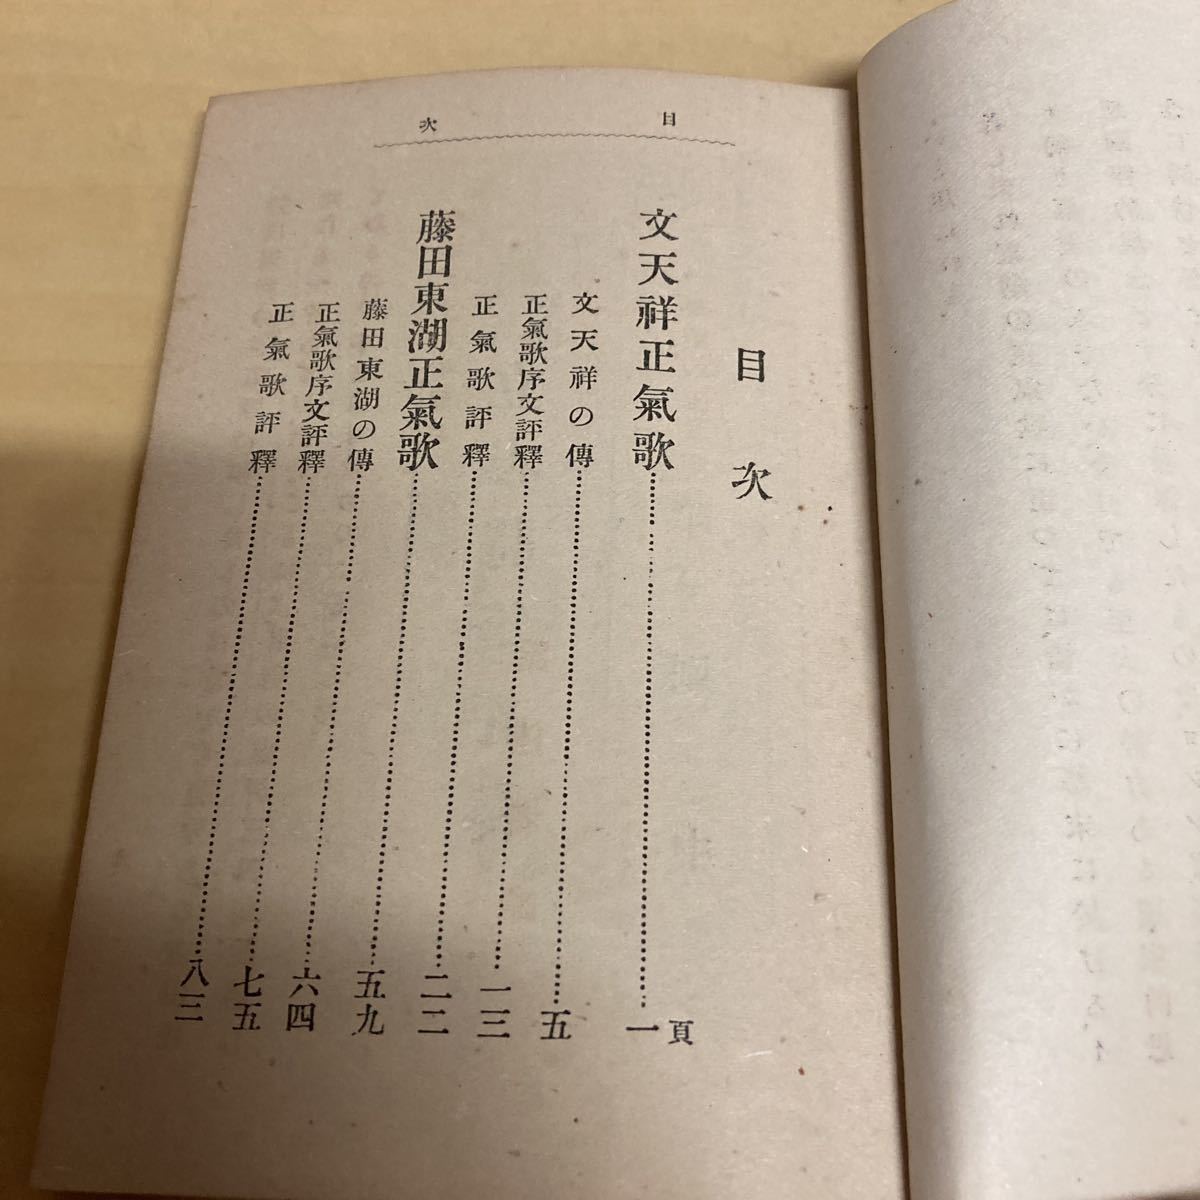 目次
目次
文天祥正氣歌………一頁
文天祥の傳………五
正氣歌序文評釋………一三
正氣歌評釋………二二
藤田東湖正氣歌………五九
藤田東湖の傳………六四
正氣歌序文評釋………七五
正氣歌評釋………八三